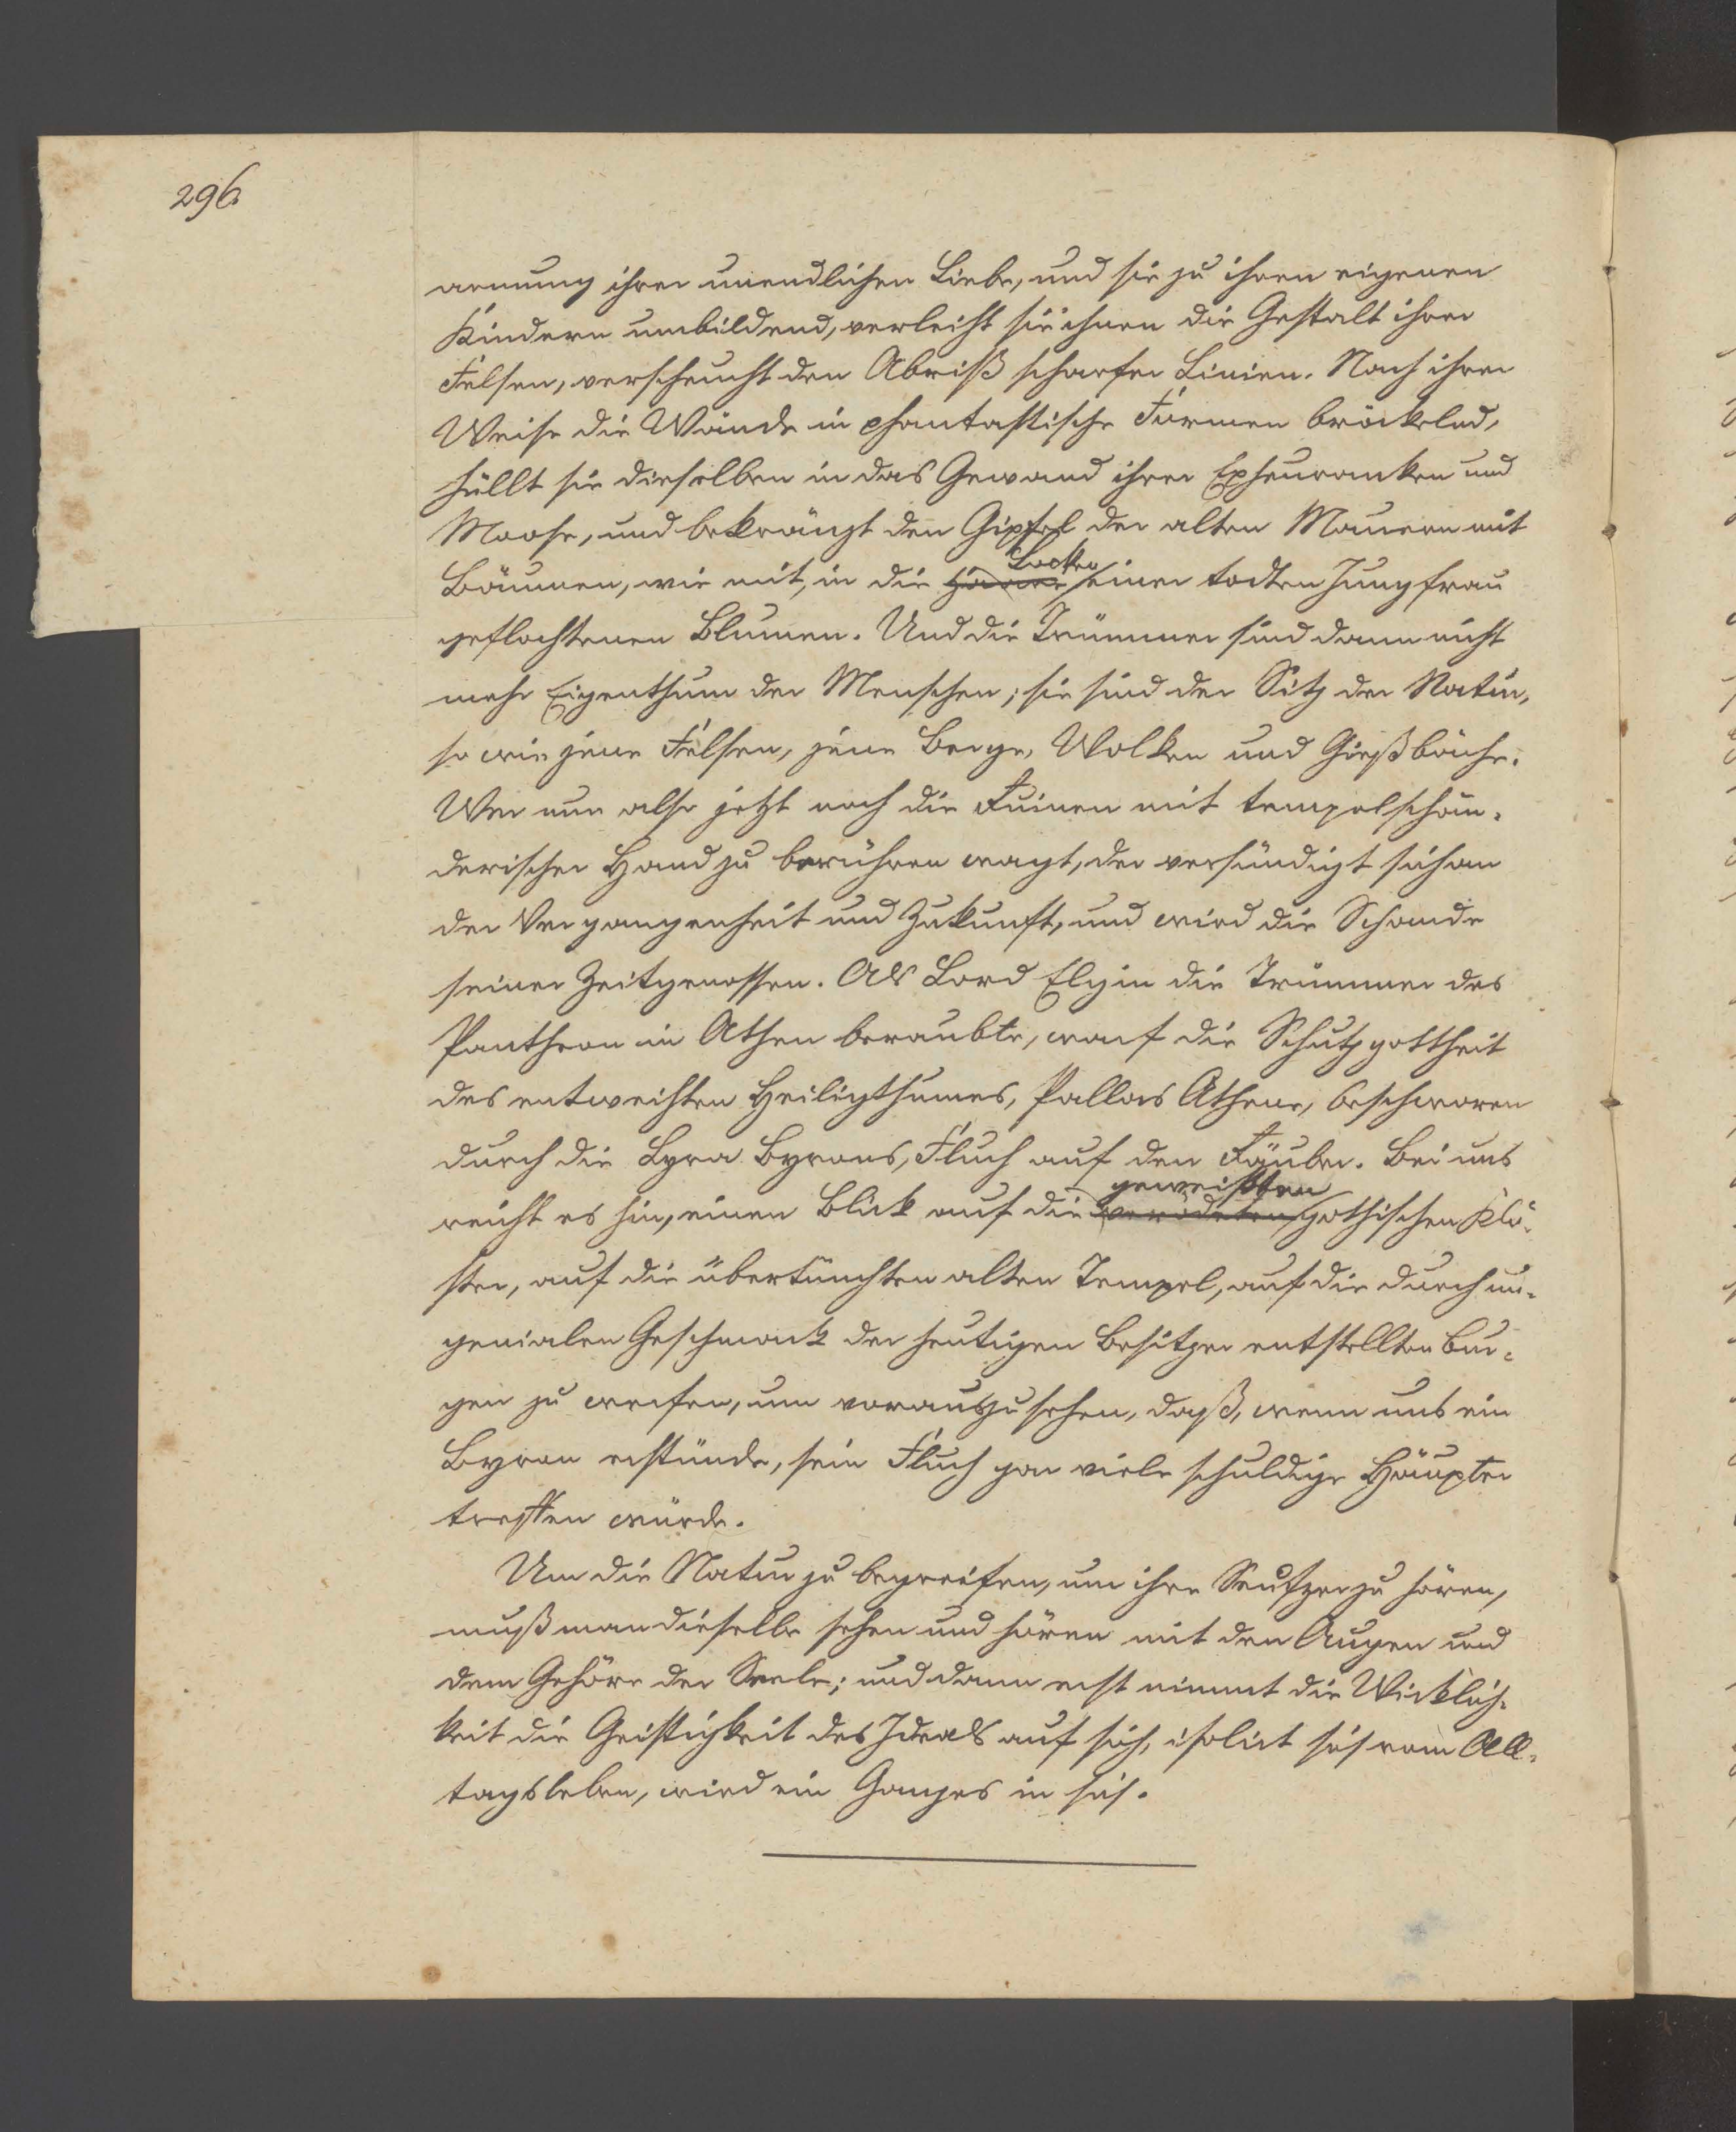 296.
armung ihrer unendlichen Liebe, und sie zu ihren eigenen
Kindern umbildend, verleiht sie ihnen die Gestalt ihrer
Felsen, verscheucht den Abriß scharfer Linien. Nach ihrer
Weise die Wände in phantastische Formen bröckelnd,
hüllt sie dieselben in das Gewand ihrer Epheuranken und
Moose, und bekränzt den Gipfel der alten Mauern mit
Locken
Bäumen, wie mit, in die Haare einer todten Jungfrau
geflochtenen Blumen. Und die Trümmer sind dann nicht
mehr Eigenthum der Menschen; sie sind der Sitz der Natur,
so wie jene Felsen, jene Berge, Wolken und Gießbäche.
Wer nun also jetzt noch die Ruinen mit tempelschän-
derischer Hand zu berühren wagt, der versündigt sich an
der Vergangenheit und Zukunft, und wird die Schande
seiner Zeitgenossen. Als Lord Elgin die Trümmer des
Pantheon in Athen beraubte, warf die Schutzgottheit
des entweihten Heiligthumes, Pallas Athene, beschworen
durch die Lyra Byrons, Fluch auf den Räuber. Bei uns
geweißten
reicht es hin, einen Blick auf die verödeten gothischen Klö-
ster, auf die übertünchten alten Tempel, auf die durch un-
genialen Geschmack der heutigen Besitzer entstellten Bur-
gen zu werfen, um vorauszusehen, daß, wenn uns ein
Byron erstünde, sein Fluch gar viele schuldige Häupter
treffen würde.
Um die Natur zu begreifen, um ihre Seufzer zu hören,
muß man dieselbe sehen und hören mit den Augen und
dem Gehöre der Seele; und dann erst nimmt die Wirklich-
keit die Geistigkeit des Ideals auf sich, isolirt sich vom All-
tagsleben, wird ein Ganzes in sich.